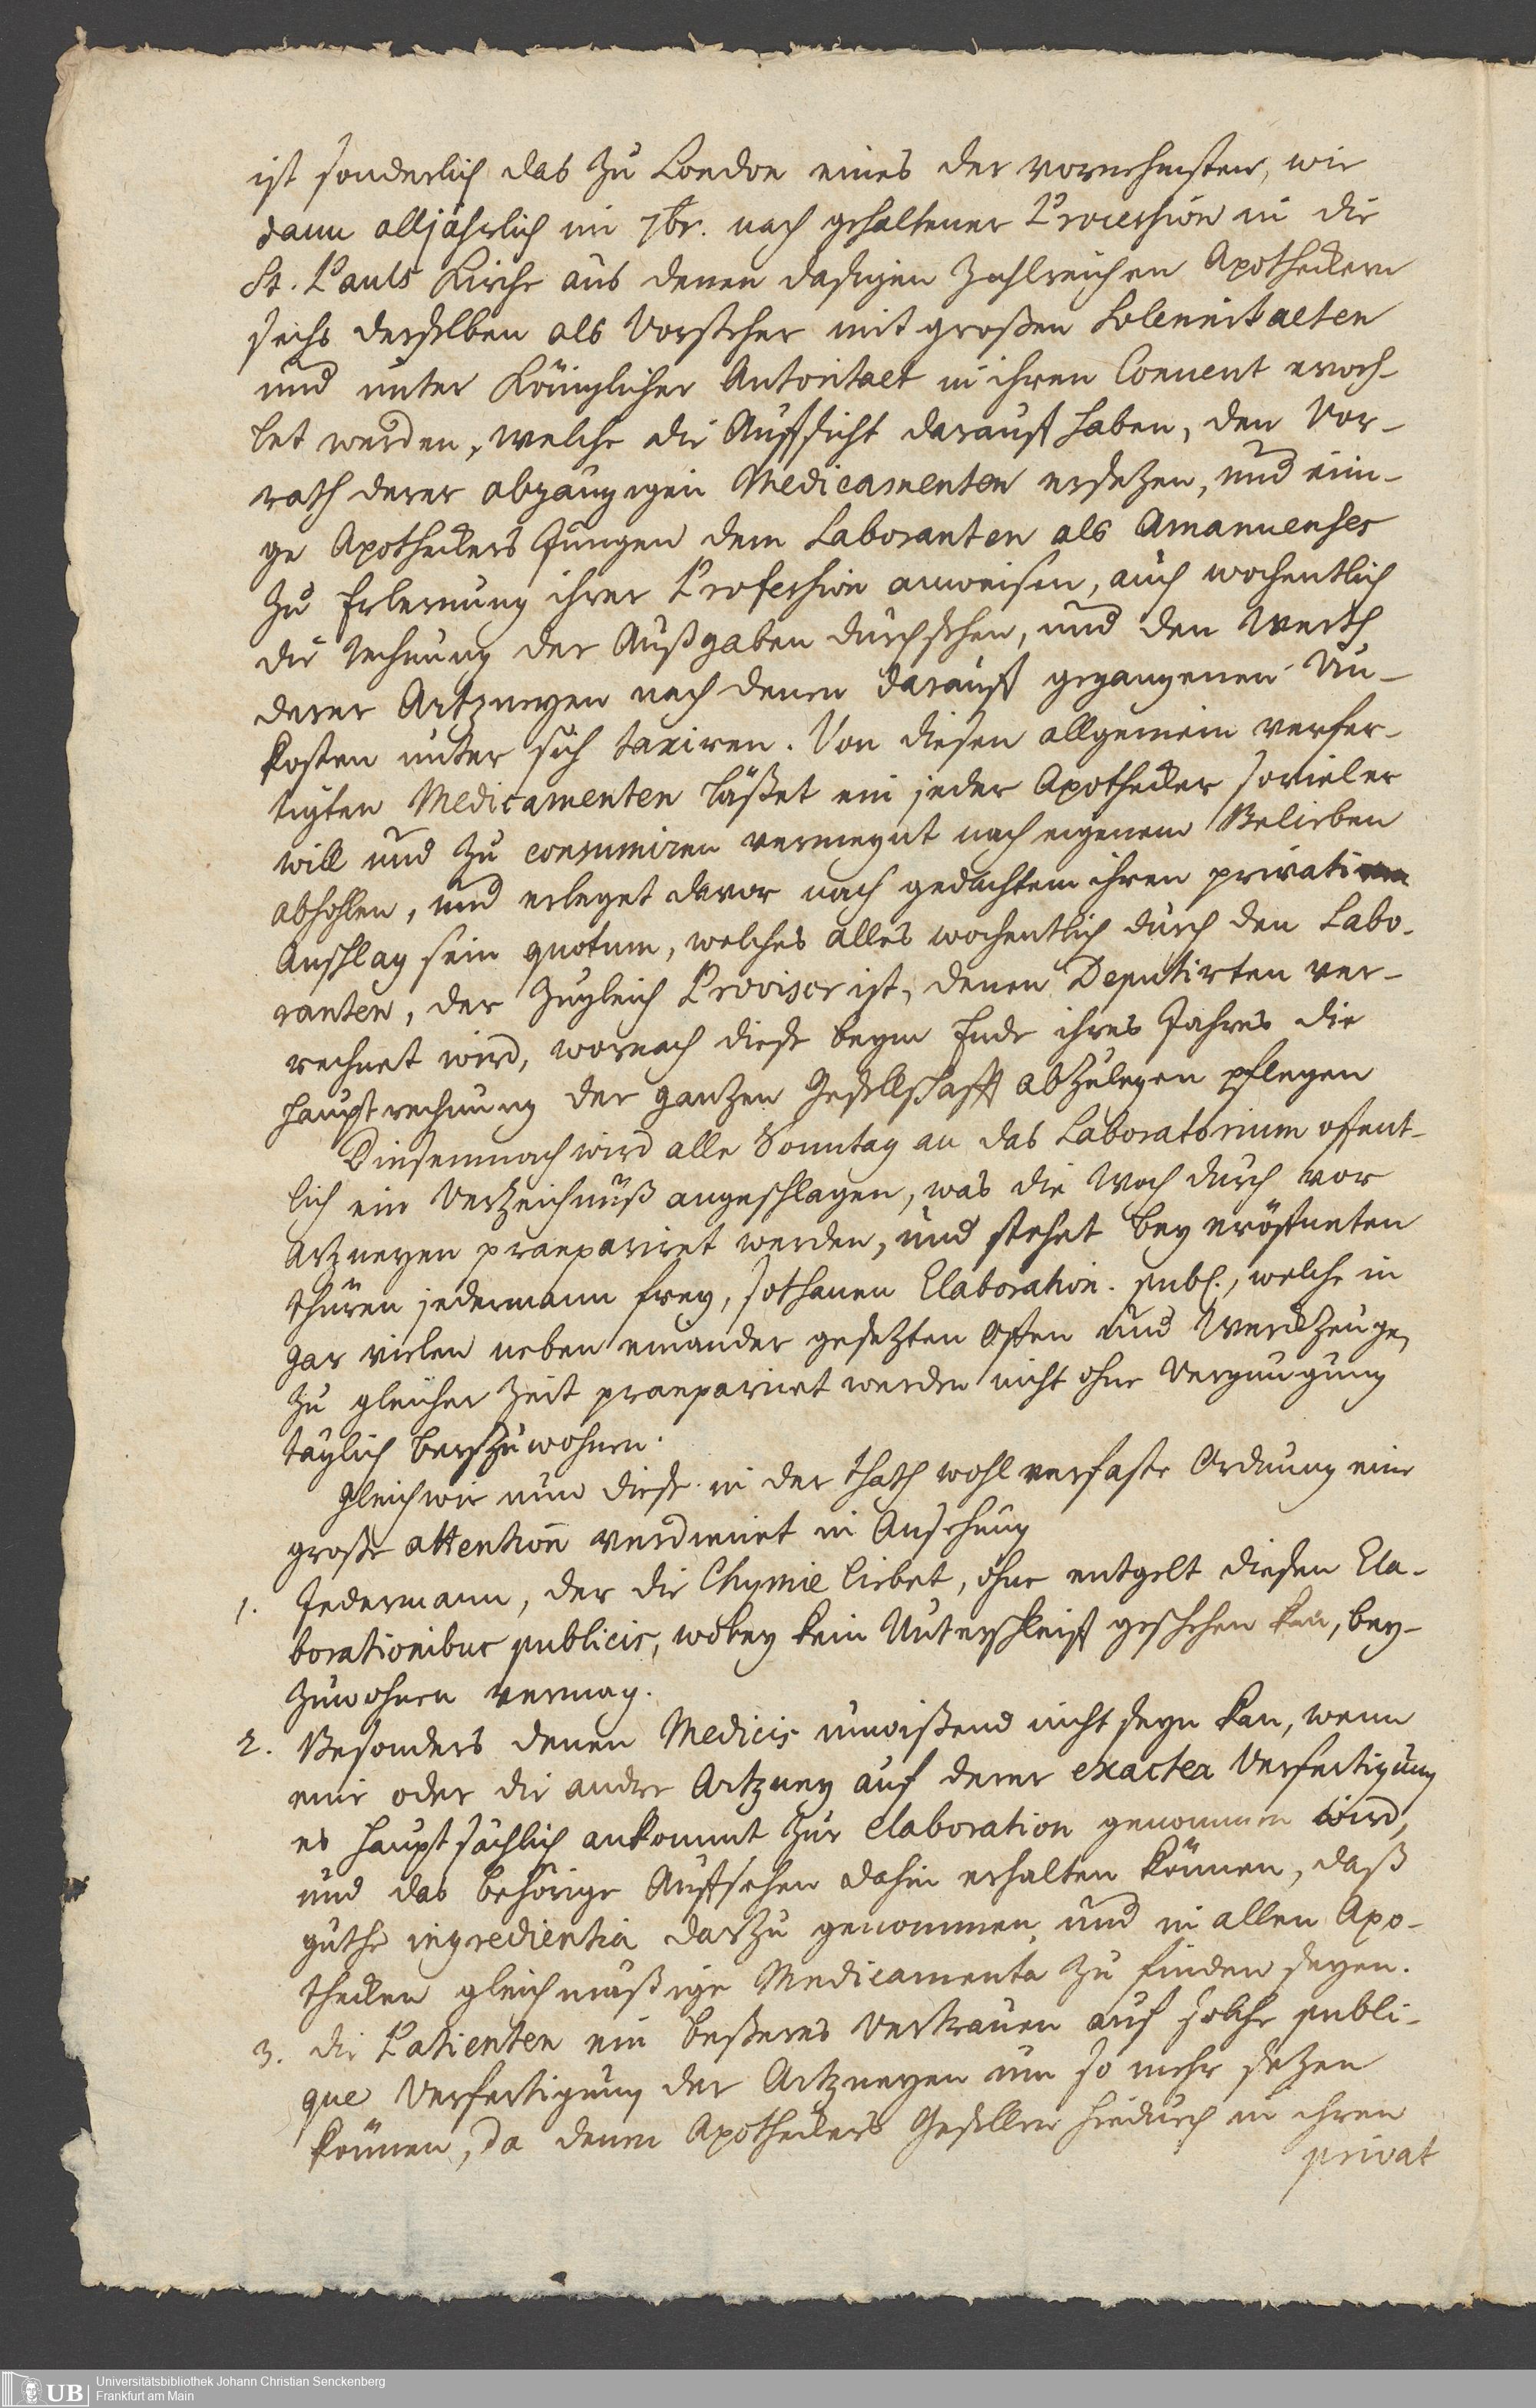 ist sonderlich das zu London eines der vornehmsten, wie
dann alljährlich im 7br. nach gehaltener Procession in die
St. Pauls Kirche aus denen dasigen zahlreichen Apotheckern
sechs derselben als Vorsteher mit großen Solennitaeten
und unter Königlicher Autoritaet in ihren Convent erweh-
let werden, welche die Auffsicht darauff haben, den Vor-
rath derer abgängigen Medicamenten ersetzen, und eini-
ge Apotheckers Jungen dem Laboranten als Amanuenses
zu Erlernung ihrer Profession anweisen, auch wochentlich
die Rechnung der Außgaben durchsehen, und den Werth
derer Artzneyen nach denen darauff gegangenen Un-
kosten unter sich taxiren. Von diesen allgemein verfer-
tigten Medicamenten läßet ein jeder Apothecker soviel er
will und zu consumiren vermeynt nach eigenem Belieben
abhohlen, und erleget davor nach gedachtem ihren privat
Anschlag sein quotum, welches alles wochentlich durch den Labo-
ranten, der zugleich Provisor ist, denen Deputirten ver-
rechnet wird, wornach diese beym Ende ihres Jahres die
Hauptrechnung der gantzen Gesellschafft abzulegen pflegen
Diesemnach wird alle Sonntag an das Laboratorium offent-
lich ein Verzeichnüß angeschlagen, was die Woch durch vor
Artzneyen praepariret werden, und stehet bey eröffneten
Thüren jedermann frey, sothanen Elaboration. publ., welche in
gar vielen neben einander gesetzten Offen und Werckzeuge,
zu gleicher Zeit praepariret werden nicht ohne Vergnügung
täglich beyzuwohnen.
Gleichwie nun diese in der That wohl verfaste Ordnung eine
große attention verdienet in Ansehung
1. Jedermann, der die Chymie liebet, ohne entgelt diesen Ela-
borationibus publicis, wobey kein Unterschleiff geschehen kan, bey-
zuwohnen vermag.
2. Besonders denen Medicis unwißend nicht seyn kan, wenn
eine oder die andre Artzney auf derer exacten Verfertigung
es hauptsächlich ankommt zur elaboration genommen wird,
und das behörige Auffsehen dahin erhalten können, daß
guthe ingredientia darzu genommen, und in allen Apo-
thecken gleichmäßige Medicamenta zu finden seyen.
3. die Patienten ein beßeres Vertrauen auf solche publi-
que Verfertigung der Artzneyen um so mehr setzen
können, da denen Apotheckers Gesellen hiedurch in ihren
privat
Universitätsbibliothek Johann Christian Senckenberg
UB Frankfurt am Main